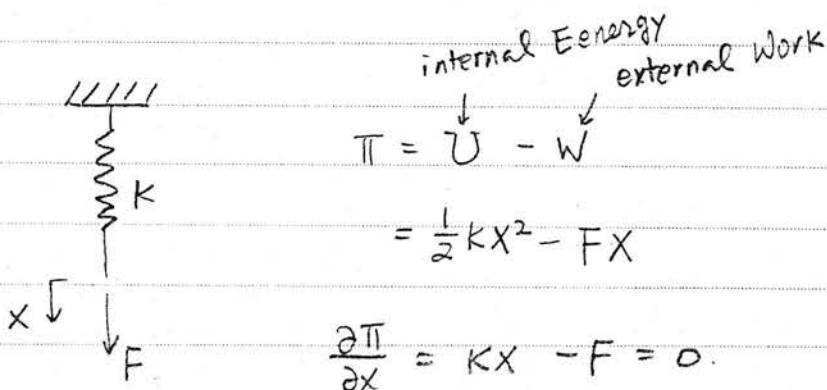 internal Eenergy
external Work
π = U - W
K
= ½kx² - Fx
x
F
∂π/∂x = Kx - F = 0.